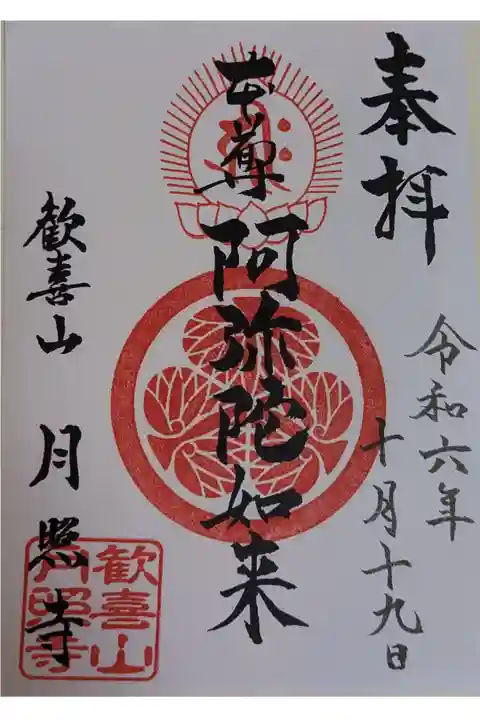 奉拝
令和六年
十月十九日
本尊 阿弥陀如来
歓喜山 月照寺
歓喜山
月照寺